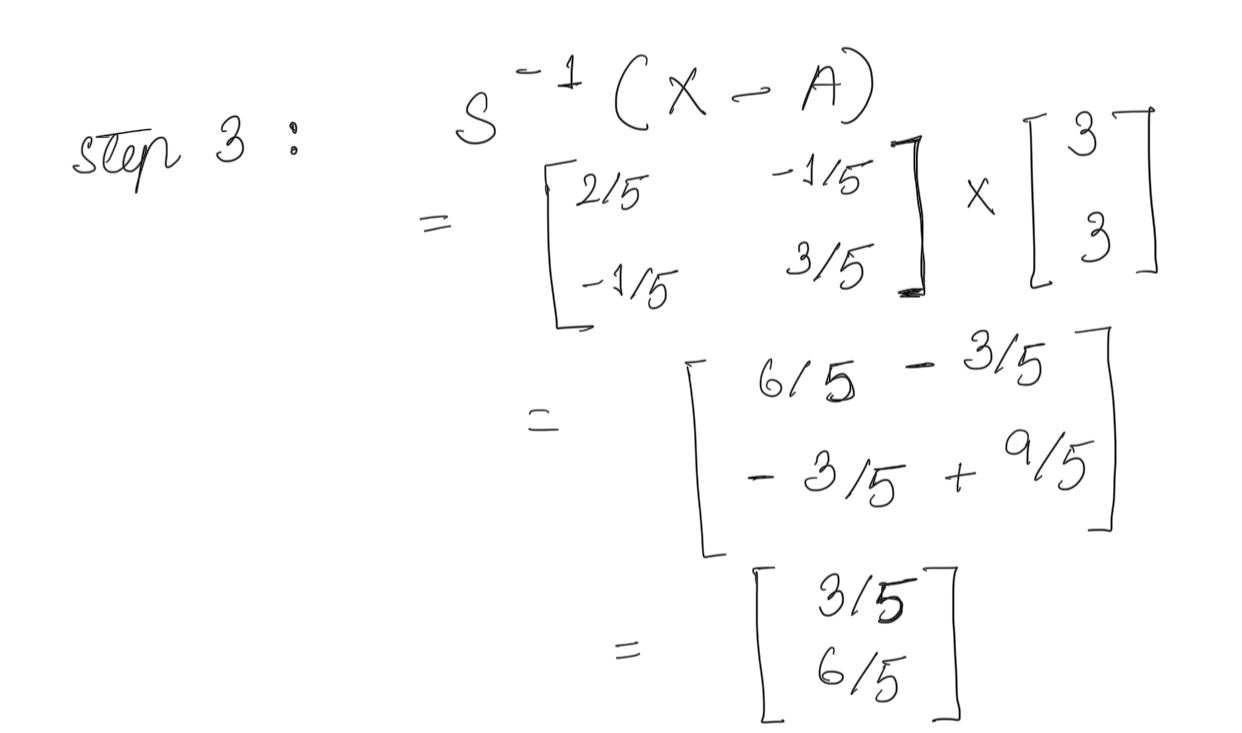 step 3 : S^-1 (X - A)
= [ 2/5 -1/5 ] x [ 3 ]
[ -1/5 3/5 ] [ 3 ]
= [ 6/5 - 3/5 ]
[ - 3/5 + 9/5 ]
= [ 3/5 ]
[ 6/5 ]